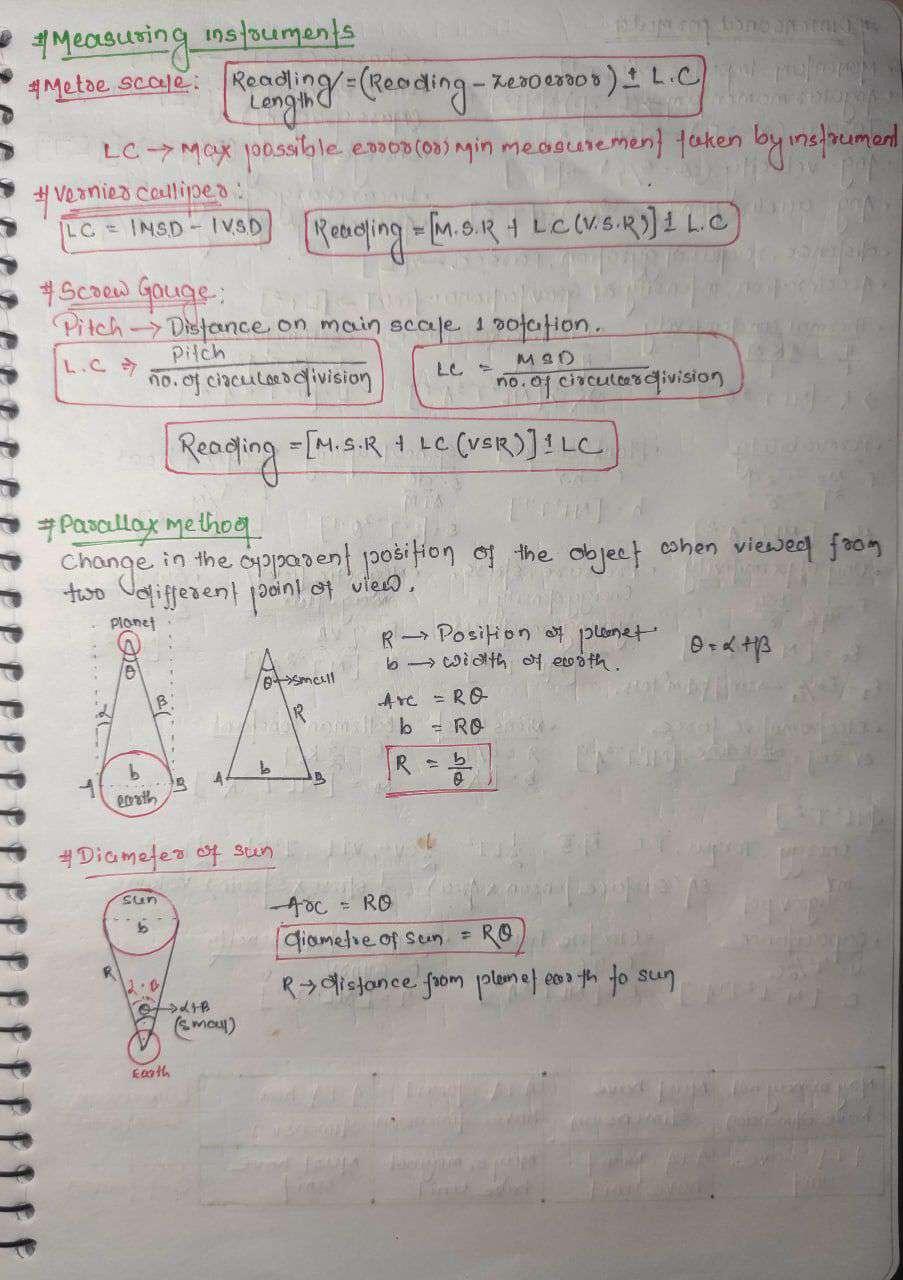 # Measuring instruments
# Metre scale: Reading Length = (Reading - zero error) ± L.C
LC → Max possible error (or) Min measurement taken by instrument
# Vernier calliper:
LC = 1MSD - 1VSD Reading = [M.S.R + LC (V.S.R)] ± L.C
# Screw Gauge:
Pitch → Distance on main scale 1 rotation.
L.C ⇒ Pitch / no. of circular division LC = MSD / no. of circular division
Reading = [M.S.R + LC (VSR)] ± LC
# Parallax method
change in the apparent position of the object when viewed from
two different point of view.
planet
θ
α β
A b B
earth
θ → small
R
A b B
R → Position of planet θ = α + β
b → width of earth.
Arc = Rθ
b = Rθ
R = b / θ
# Diameter of sun
sun
b
R
θ → α+β
(small)
Earth
Arc = Rθ
diametre of sun = Rθ
R → distance from planet earth to sun